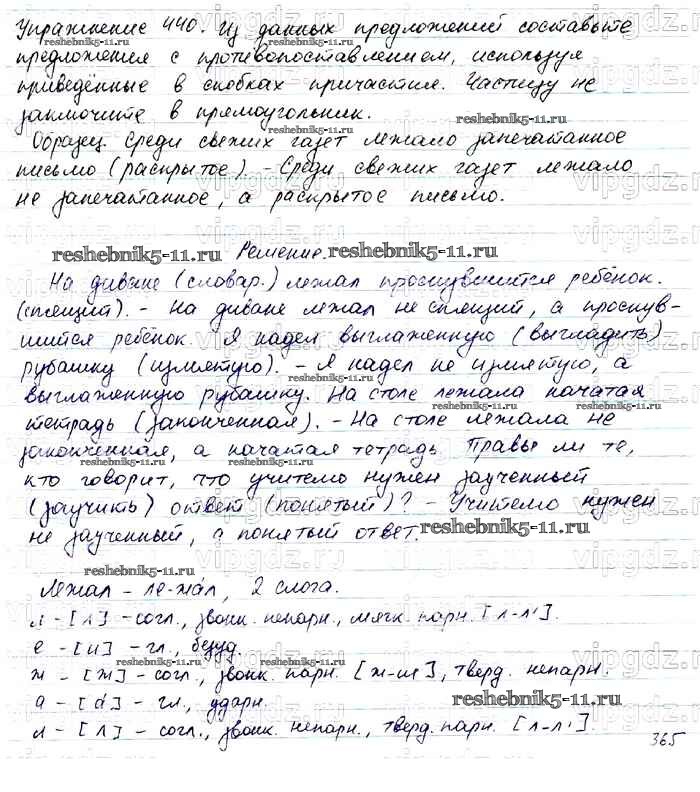 Упражнение 440. Из данных предложений составьте
предложения с противопоставлением, используя
приведённые в скобках причастия. Частицу не
заключите в прямоугольник.
Образец. Среди свежих газет лежало запечатанное
письмо (раскрытое). - Среди свежих газет лежало
не запечатанное, а раскрытое письмо.
reshebnik5-11.ru Решение. reshebnik5-11.ru
На диване (словар.) лежал проснувшийся ребёнок.
(спящий). - На диване лежал не спящий, а проснув-
шийся ребёнок. Я надел выглаженную (выгладить)
рубашку (измятую). - Я надел не измятую, а
выглаженную рубашку. На столе лежала начатая
тетрадь (законченная). - На столе лежала не
законченная, а начатая тетрадь. Правы ли те,
кто говорит, что учителю нужен заученный
(заучить) ответ (понятый)? - Учителю нужен
не заученный, а понятый ответ. reshebnik5-11.ru
Лежал - ле-жа́л, 2 слога.
л - [л] - согл., звонк. непарн., мягк. парн. [л-л'].
е - [и] - гл., безуд.
ж - [ж] - согл., звонк. парн. [ж-ш], тверд. непарн.
а - [а́] - гл., ударн. reshebnik5-11.ru
л - [л] - согл., звонк. непарн., тверд. парн. [л-л'].
365